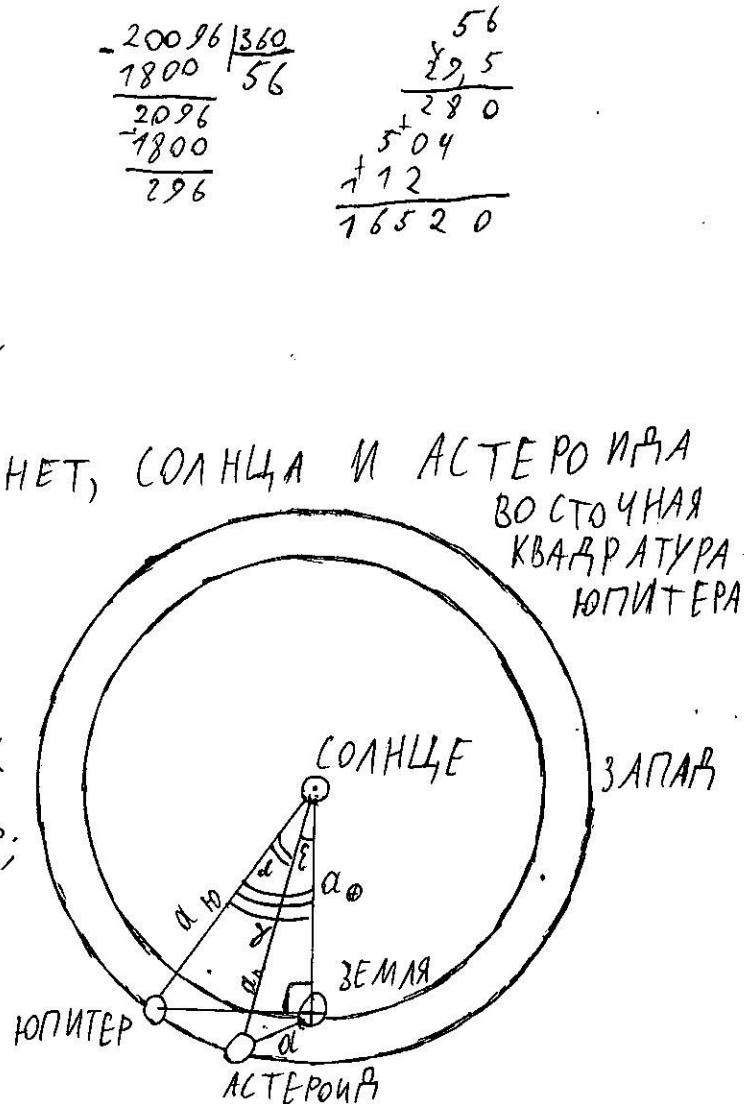 - 20096 | 360
1800 56
2096
- 1800
296
56
× 29,5
280
+ 504
+ 112
16520
НЕТ, СОЛНЦА И АСТЕРОИДА
ВОСТОЧНАЯ
КВАДРАТУРА
ЮПИТЕРА
СОЛНЦЕ
ЗАПАД
α ξ
a ю
a ⊕
γ
ЗЕМЛЯ
ЮПИТЕР
АСТЕРОИД